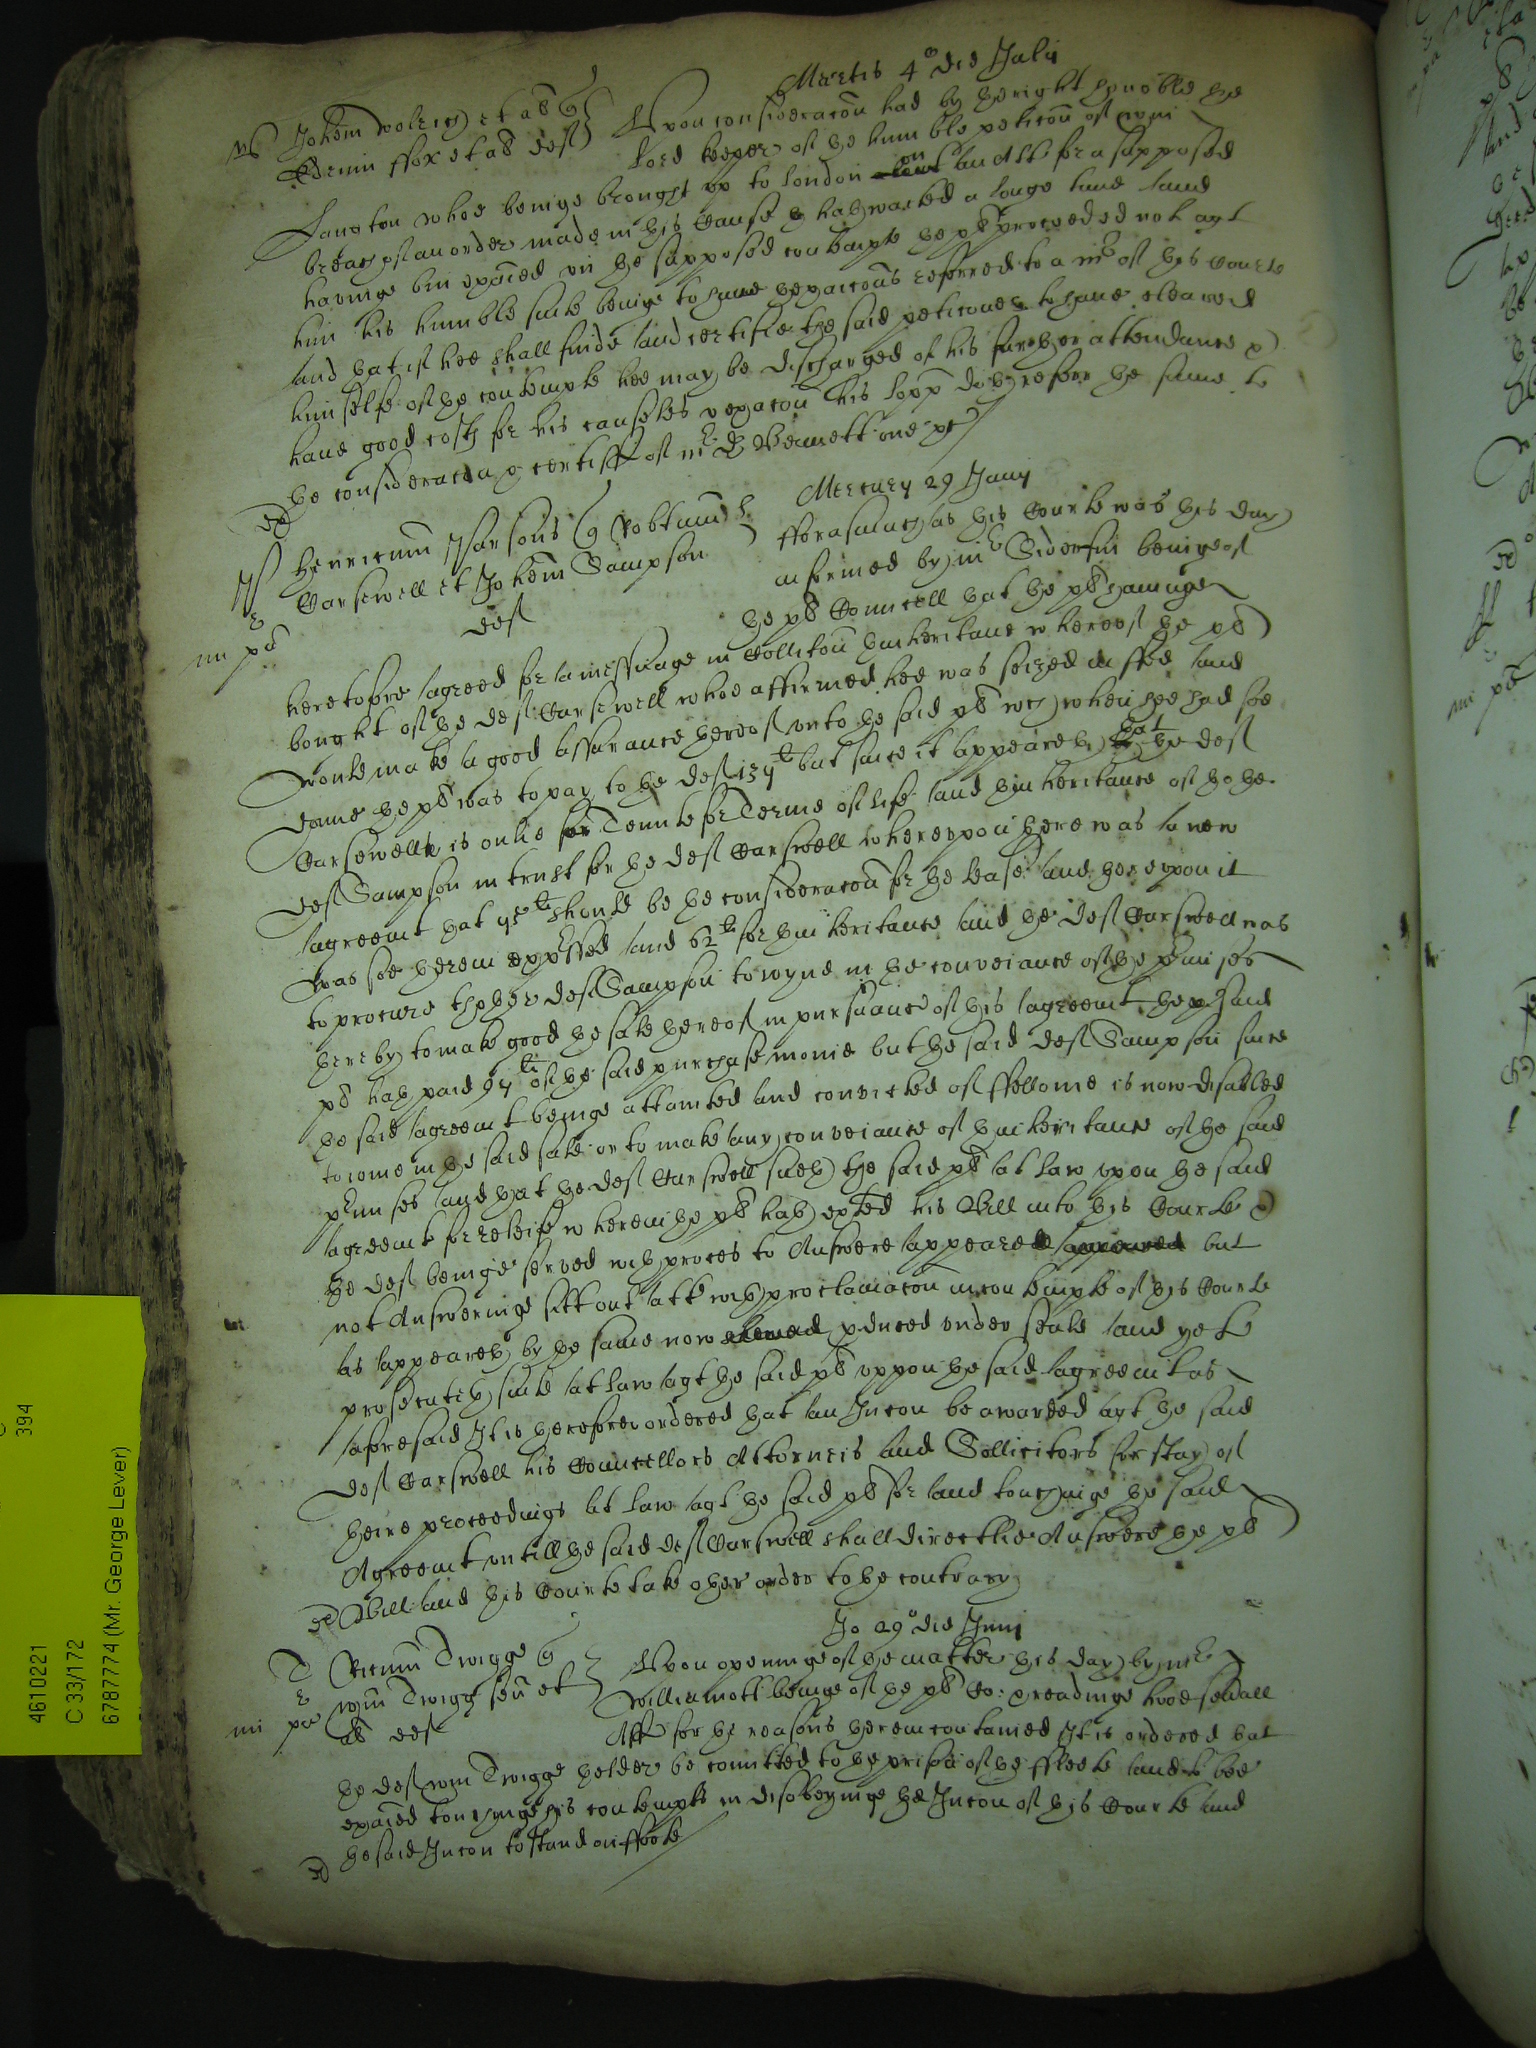 Martis 4° die Julij
Johem et al q
ffox et al def } Upon consideracon had by the right honoble the
Lord keeper of the humble peticon of Wm
Langton whoe beinge brought up to London on an Att for a supposed
breach of an order made in this Cause & hath waited a longe time and
havinge bin exaied on the supposed contempte the pl proceeded not agt
him his humble suite beinge to have thexaicons referred to a mr of this Courte
and that if hee shall finde and certifie the said peticoner to have cleared
himselfe of the contempte hee may be discharged of his further attendance &
have good costs for his causeles vexacon his lopp doth referr the same to
the consideracon & certiff of mr Dr Bennett one &c
Mercurij 29 Junij
Henricum Parsons q Robtum
Carswell et Johem Sampson
def
} fforasmuch as this Courte was this day
informed by mr Siderfin beinge of
the pls Councell that the pl haninge
heretofore agreed for a messuage in Colliton thinheritance whereof the pl
bought of the def Carswell whoe affirmed hee was seized in ffee and
would make a good assurance thereof unto the said pl wch when hee had soe
donne the pl was to pay to the def 137li but since it appeareth that the def
Carswell is onlie Tennte for Terme of life and thinheritance of thothe
def Sampson in trust for the def Carswell whereupon there was a new
agreemt that 75li should be the consideracon for the lease and thereupon it
was soe therein expssed and 62li for thinheritance and the def Carswell was
to procure thother def Sampson to ioyne in the conveiance of the pmises
thereby to make good the sale thereof in pursuance of this agreemt the said
pl hath paid 97li of the said purchase monie but the said def Sampson since
the said agreemt beinge attainted and convicted of ffellonie is now disabled
to ioine in the said sale or to make any conveiance of thinheritance of the said
pmises and that the def Carswell sueth the said pl at law upon the said
agreemt for releife wherein the pl hath exhted his Bill into this Courte &
the def beinge served wth proces to Answere appeared but
not Answeringe sitt out att wth proclamacon in contempte of this Courte
as appeareth by the same now pduced under seale and yet
prosecuteth suite at law agt the said pl uppon the said agreemt as
aforesaid It is therefore ordered that an Incon be awarded agt the said
def Carswell his Councellors Attorneis and Sollicitors for stay of
theire proceedings at law agt the said pl for and touchinge the said
Agreemt untill the said def Carswell shall directlie Answere the pls
Bill and this Courte take other order to the contrary
Jo 29° die Junij
Twigge q
Wm Twigg sen et
al def
} Upon openinge of the matter this day by mr
Williamott beinge of the pls Co: & readinge twoe seūall
Aff for the reasons therein contained It is ordered that
the def Wm Twigge thelder be comitted to the prison of the ffleete and to bee
exaied touchinge his contempts in disobeyinge the Incon of this Courte and
the said Incon to stand on ffoote
394
4610221
C 33/172
6787774 (Mr. George Lever)